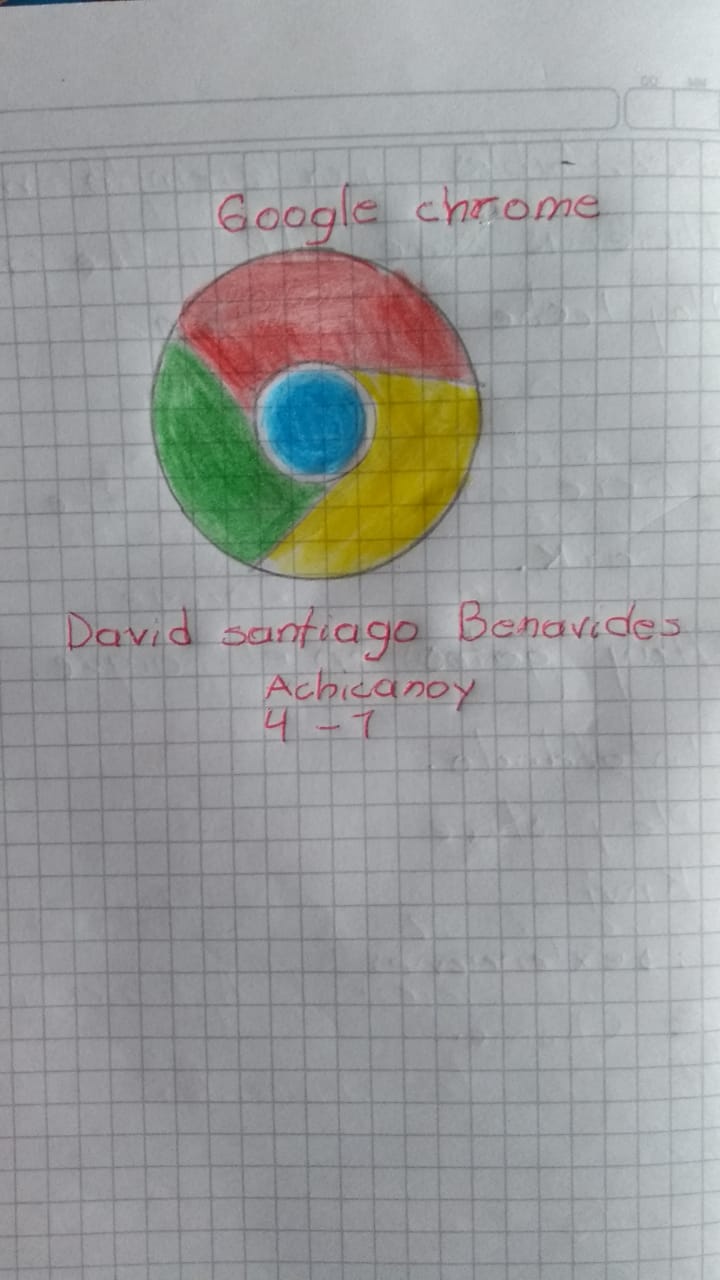 Google chrome
David santiago Benavides
Achicanoy
4 - 7